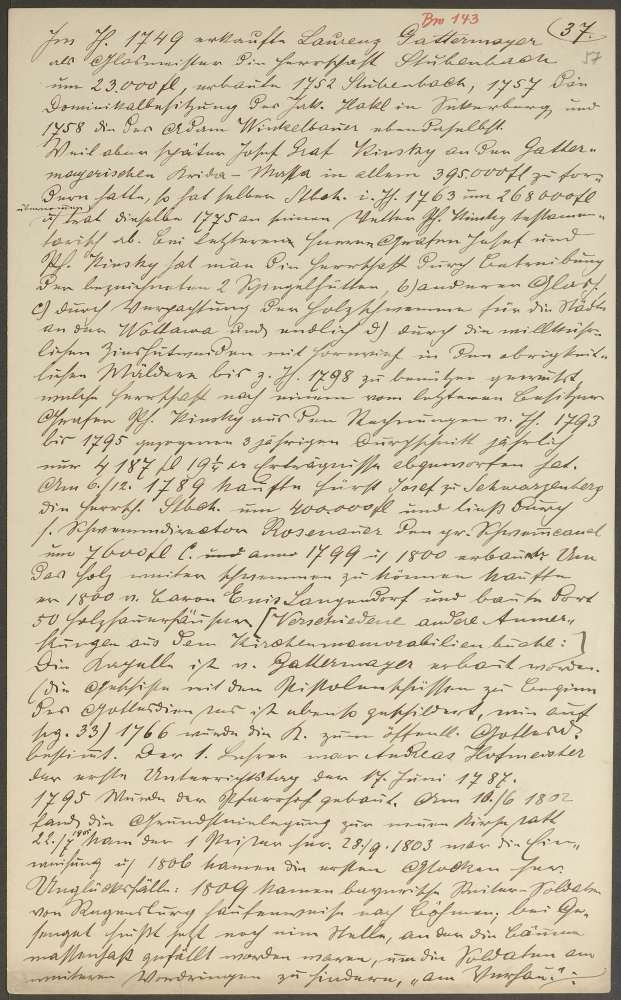 Bm 143
37.
57
Im Jh. 1749 erkaufte Laurenz Gattermayer
als Glasmeister die Herrschaft Stubenbach
um 23.000 fl, erbaute 1752 Stubenbach, 1757 die
Dominikalbesitzung des Jak. Hakl in Sekerberg, und
1758 die des Adam Winkelbauer ebendaselbst.
Weil aber später Josef Graf Kinsky an der Gatter-
mayerischen Krida-Massa in allem 395.000 fl zu for-
dern hatte, so hat selber Stbch. i. Jh. 1763 um 268000 fl
übernommen
u trat dieselbe 1775 an seinen Vetter Ph. Kinsky testamen-
tarisch ab. Bei letzteren Herren Grafen Josef und
Ph. Kinsky hat man die Herrschaft durch Betreibung
der bezeichneten 2 Spiegelhütten, b) anderer Glash.
c) durch Verpachtung der Holzschwemme für die Städte
an der Wottawa und endlich d) durch die willkühr-
lichen Zinshutweiden mit Hornvieh in den obrigkeit-
lichen Wäldern bis z. Jh. 1798 zu benützen gewußt,
welche Herrschaft nach einem vom letzteren Besitzer
Grafen Ph. Kinsky aus den Rechnungen v. Jh. 1793
bis 1795 gezogenen 3 jährigen Durchschnitt jährlich
nur 4187 fl 19¼ kr Erträgnisse abgeworfen hat.
Am 6./12. 1789 kaufte Fürst Josef zu Schwarzenberg
die Herrsch. Stbch. um 400.000 fl und ließ durch
s. Schwemmdirector Rosenauer den gr. Schwemmcanal
um 7600 fl C. und anno 1799 u 1800 erbauen. Um
das Holz weiter schwemmen zu können kaufte
er 1800 v. Baron Enis Langendorf und baute dort
50 Holzhauerhäuser [Verschiedene andere Anmer-
kungen aus dem Kirchenmemorabilienbuche:]
Die Kapelle ist v. Gattermayer erbaut worden.
(die Geschichte mit den Pistolenschüssen zu Beginn
des Gottesdienstes ist ebenso geschildert, wie auf
pg. 33) 1766 wurde die K. zum öffentl. Gottesd.
bestimmt. Der 1. Lehrer war Andreas Hofmeister
der erste Unterrichtstag der 17. Juni 1787.
1795 wurde der Pfarrhof gebaut. Am 10./6 1802
fand die Grundsteinlegung zur neuen Kirche statt
22./7 kam der 1 Priester her. 28./9. 1803 war die Ein-
weihung u 1806 kamen die ersten Glocken her.
Unglücksfälle: 1809 kamen bayerische Reiter-Soldaten
von Regensburg haufenweise nach Böhmen; bei Ge-
senget heißt jetzt noch eine Stelle, an der die Bäume
massenhaft gefällt worden waren, um die Soldaten am
weiteren Vordringen zu hindern, "am Verhau":